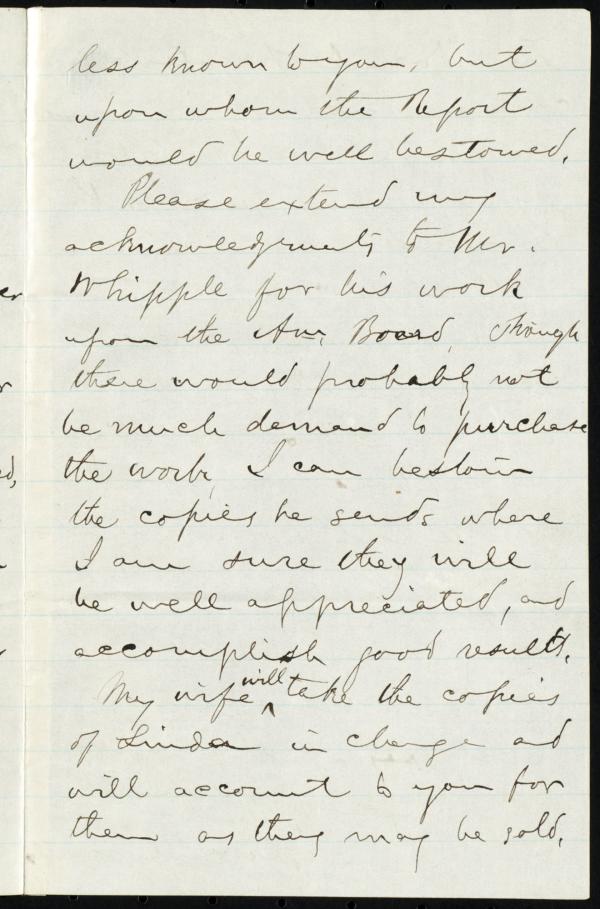 less known to you, but
upon whom the Report
would be well bestowed.
Please extend my
acknowledgments to Mr.
Whipple for his work
upon the Am. Board, though
there would probably not
be much demand to purchase
the work, I can bestow
the copies he sends where
I am sure they will
be well appreciated, and
accomplish good results.
My wife will take the copies
of Linda in charge and
will account to you for
them as they may be sold.